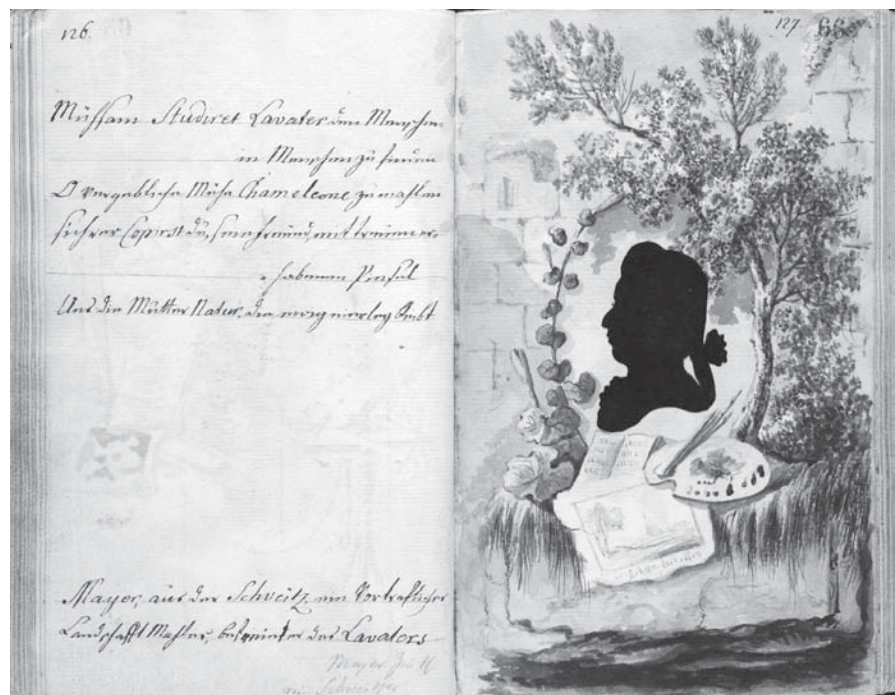 126.
Mühsam Studiret Lavater den Menschen
in Menschen zu finden
O vergebliche Mühe Chameleone zu mahlen
sichrer Copirst du, sein freund, mit treuem er,
habenen Pinsel
Uns die Mutter Natur, die ewig einerley bleibt
Mayer, aus der Schweitz, ein Vortreflicher
Landschafft Mahler, befreündter des Lavaters
Mayer
Schweitzer
127. 66